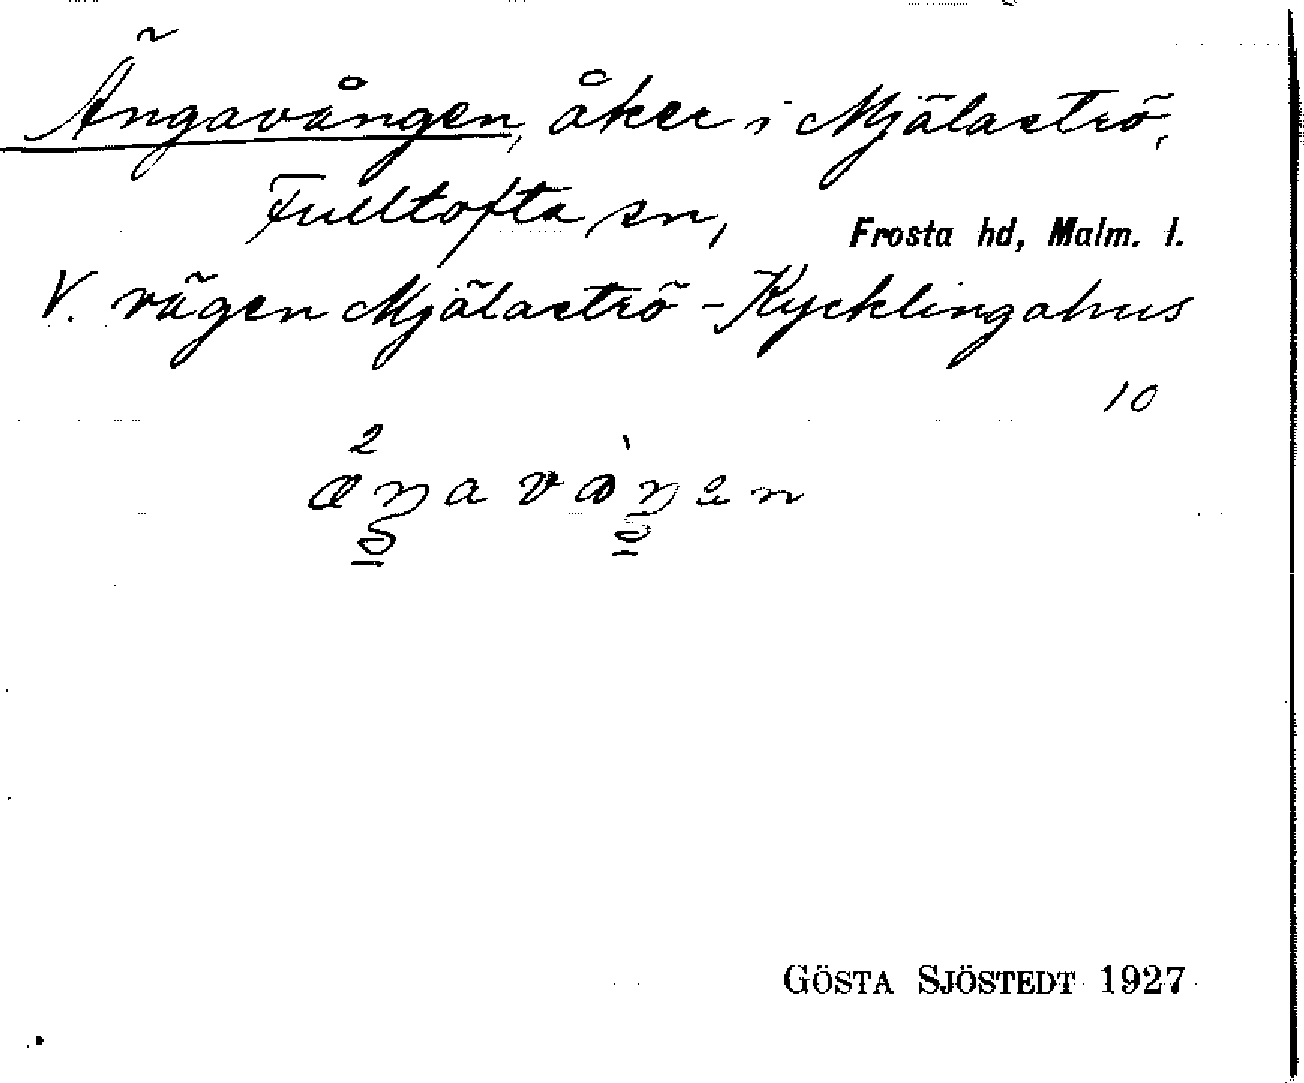 Ängavången, åker i Mjälaströ,
Fulltofta sn, Frosta hd, Malm. l.
V. vägen Mjälaströ - Kycklingahus
10
GÖSTA SJÖSTEDT 1927